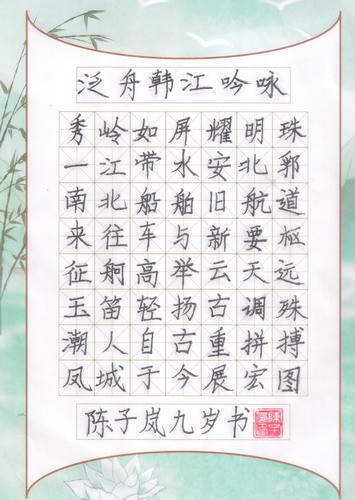 泛舟韩江吟咏
秀岭如屏耀明珠
一江带水安北郭
南北船舶旧航道
来往车与新要枢
征舸高举云天远
玉笛轻扬古调殊
潮人自古重拼搏
凤城于今展宏图
陈子岚九岁书